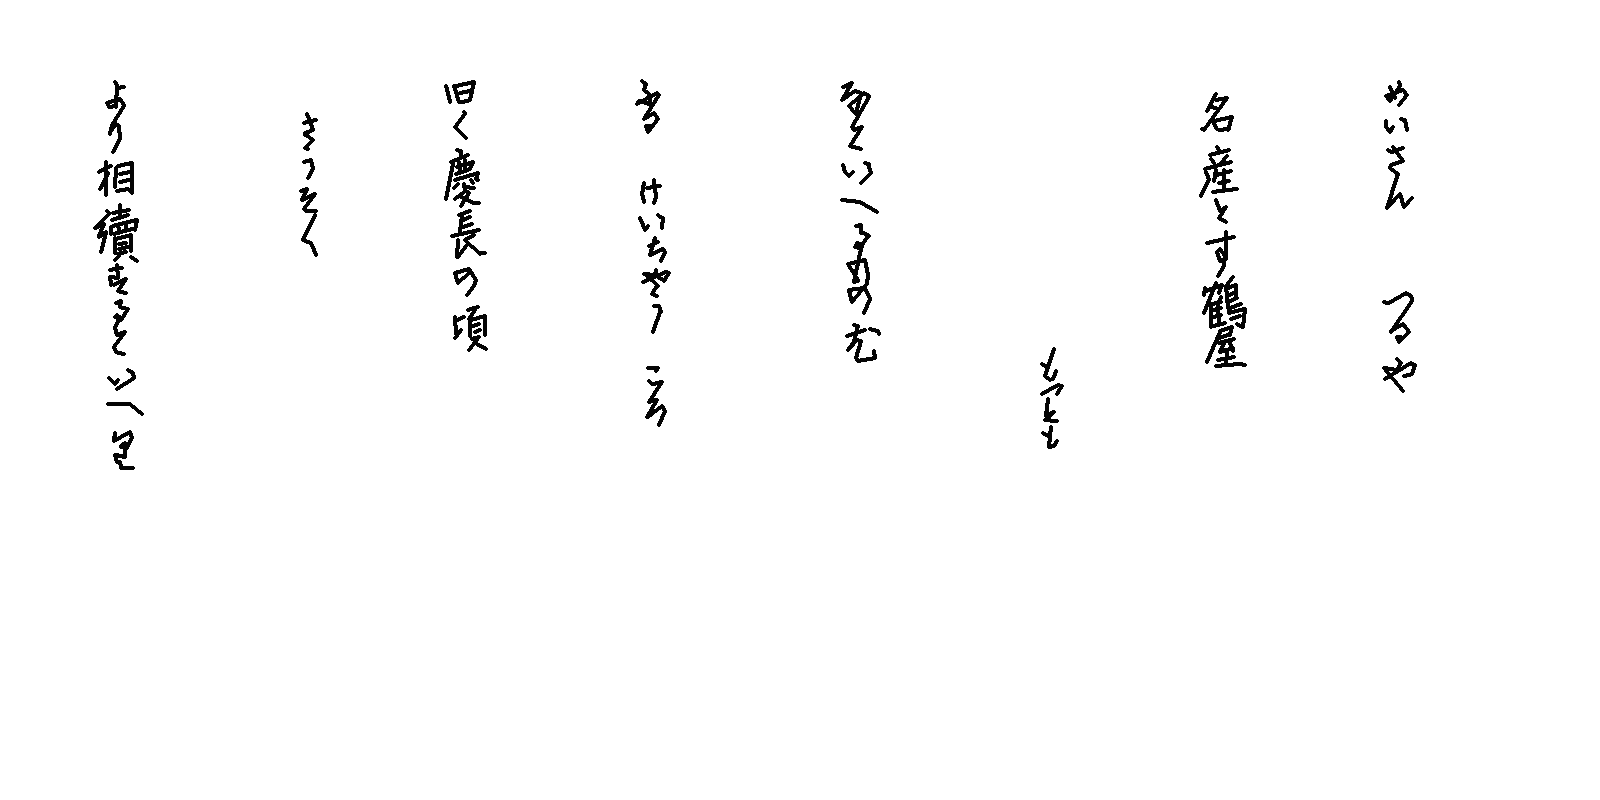 めいさん つるや
名産とす鶴屋
もつとも
なといへるもの尤
ふる けいちやう ころ
旧く慶長の頃
さうそく
より相續するといへり